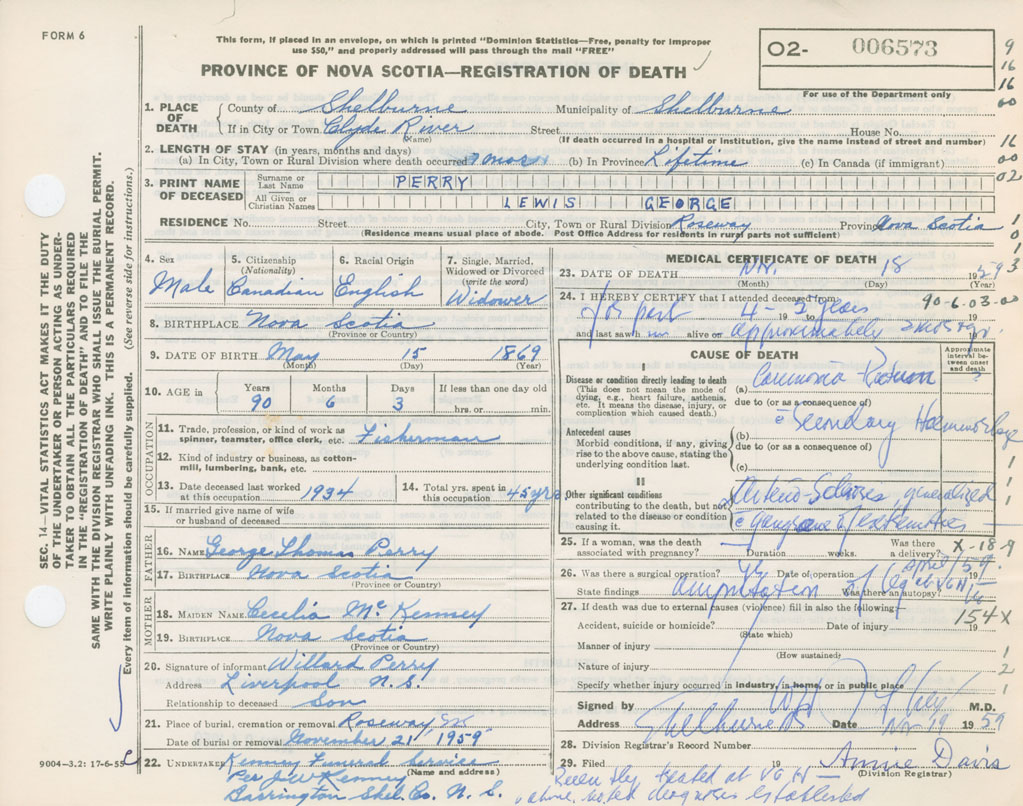 FORM 6
This form, if placed in an envelope, on which is printed "Dominion Statistics—Free, penalty for improper
use $50," and properly addressed will pass through the mail "FREE"
PROVINCE OF NOVA SCOTIA—REGISTRATION OF DEATH
O2- 006573
For use of the Department only
9
16
16
00
16
00
02
1
0
1
3
SEC. 14—VITAL STATISTICS ACT MAKES IT THE DUTY
OF THE UNDERTAKER OR PERSON ACTING AS UNDER-
TAKER TO OBTAIN ALL THE PARTICULARS REQUIRED
IN THE "REGISTRATION OF DEATH" AND TO FILE THE
SAME WITH THE DIVISION REGISTRAR WHO SHALL ISSUE THE BURIAL PERMIT.
WRITE PLAINLY WITH UNFADING INK. THIS IS A PERMANENT RECORD.
Every item of information should be carefully supplied. (See reverse side for instructions.)
1. PLACE OF DEATH { County of Shelburne Municipality of Shelburne
If in City or Town Clyde River Street House No.
(Name) (If death occurred in a hospital or institution, give the name instead of street and number)
2. LENGTH OF STAY (in years, months and days)
(a) In City, Town or Rural Division where death occurred 7 mos (b) In Province Lifetime (c) In Canada (if immigrant)
3. PRINT NAME OF DECEASED { Surname or Last Name PERRY
All Given or Christian Names LEWIS GEORGE
RESIDENCE No. Street City, Town or Rural Division Roseway Province Nova Scotia
(Residence means usual place of abode. Post Office Address for residents in rural parts not sufficient)
4. Sex Male
5. Citizenship (Nationality) Canadian
6. Racial Origin English
7. Single, Married, Widowed or Divorced (write the word) Widower
8. BIRTHPLACE Nova Scotia
(Province or Country)
9. DATE OF BIRTH May 15 1869
(Month) (Day) (Year)
10. AGE in Years Months Days If less than one day old
90 6 3 hrs. or min.
OCCUPATION
11. Trade, profession, or kind of work as
spinner, teamster, office clerk, etc. Fisherman
12. Kind of industry or business, as cotton-
mill, lumbering, bank, etc.
13. Date deceased last worked at this occupation 1934
14. Total yrs. spent in this occupation 45 yrs
15. If married give name of wife
or husband of deceased
FATHER
16. NAME George Thomas Perry
17. BIRTHPLACE Nova Scotia
(Province or Country)
MOTHER
18. MAIDEN NAME Cecelia McKenney
19. BIRTHPLACE Nova Scotia
(Province or Country)
20. Signature of informant Willard Perry
Address Liverpool N.S.
Relationship to deceased Son
21. Place of burial, cremation or removal Roseway
Date of burial or removal November 21 1959
22. UNDERTAKER Kenney Funeral Service
(Name and address)
Per J W Kenney
Barrington Shel. Co. N. S.
9004-3.2: 17-6-55
MEDICAL CERTIFICATE OF DEATH
23. DATE OF DEATH Nov. 18 1959
(Month) (Day) (Year)
24. I HEREBY CERTIFY that I attended deceased from 90-6-03-00
for past 4 - 5 years
19 to 19
and last saw alive on approximately 19
CAUSE OF DEATH
Approximate interval between onset and death
I
Disease or condition directly leading to death
(This does not mean the mode of
dying, e.g., heart failure, asthenia,
etc. It means the disease, injury, or
complication which caused death.)
(a)
due to (or as a consequence of)
Secondary Haemorrhage
Antecedent causes
Morbid conditions, if any, giving
rise to the above cause, stating the
underlying condition last.
(b)
due to (or as a consequence of)
(c)
II
Other significant conditions
contributing to the death, but not
related to the disease or condition
causing it.
Arterio-Sclerosis, generalized
gangrene of extremities
25. If a woman, was the death
associated with pregnancy? Duration weeks. Was there a delivery? X-18-9
26. Was there a surgical operation? yes Date of operation April/59
State findings amputation of leg at VGH Was there an autopsy?
27. If death was due to external causes (violence) fill in also the following:
154X
Accident, suicide or homicide? Date of injury 19
(State which)
Manner of injury
(How sustained)
Nature of injury
Specify whether injury occurred in industry, in home, or in public place
Signed by M.D.
Address Shelburne NS Date Nov 19 1959
28. Division Registrar's Record Number
29. Filed 19 Annie Davis
(Division Registrar)
Recently treated at VGH —
above noted diagnoses established